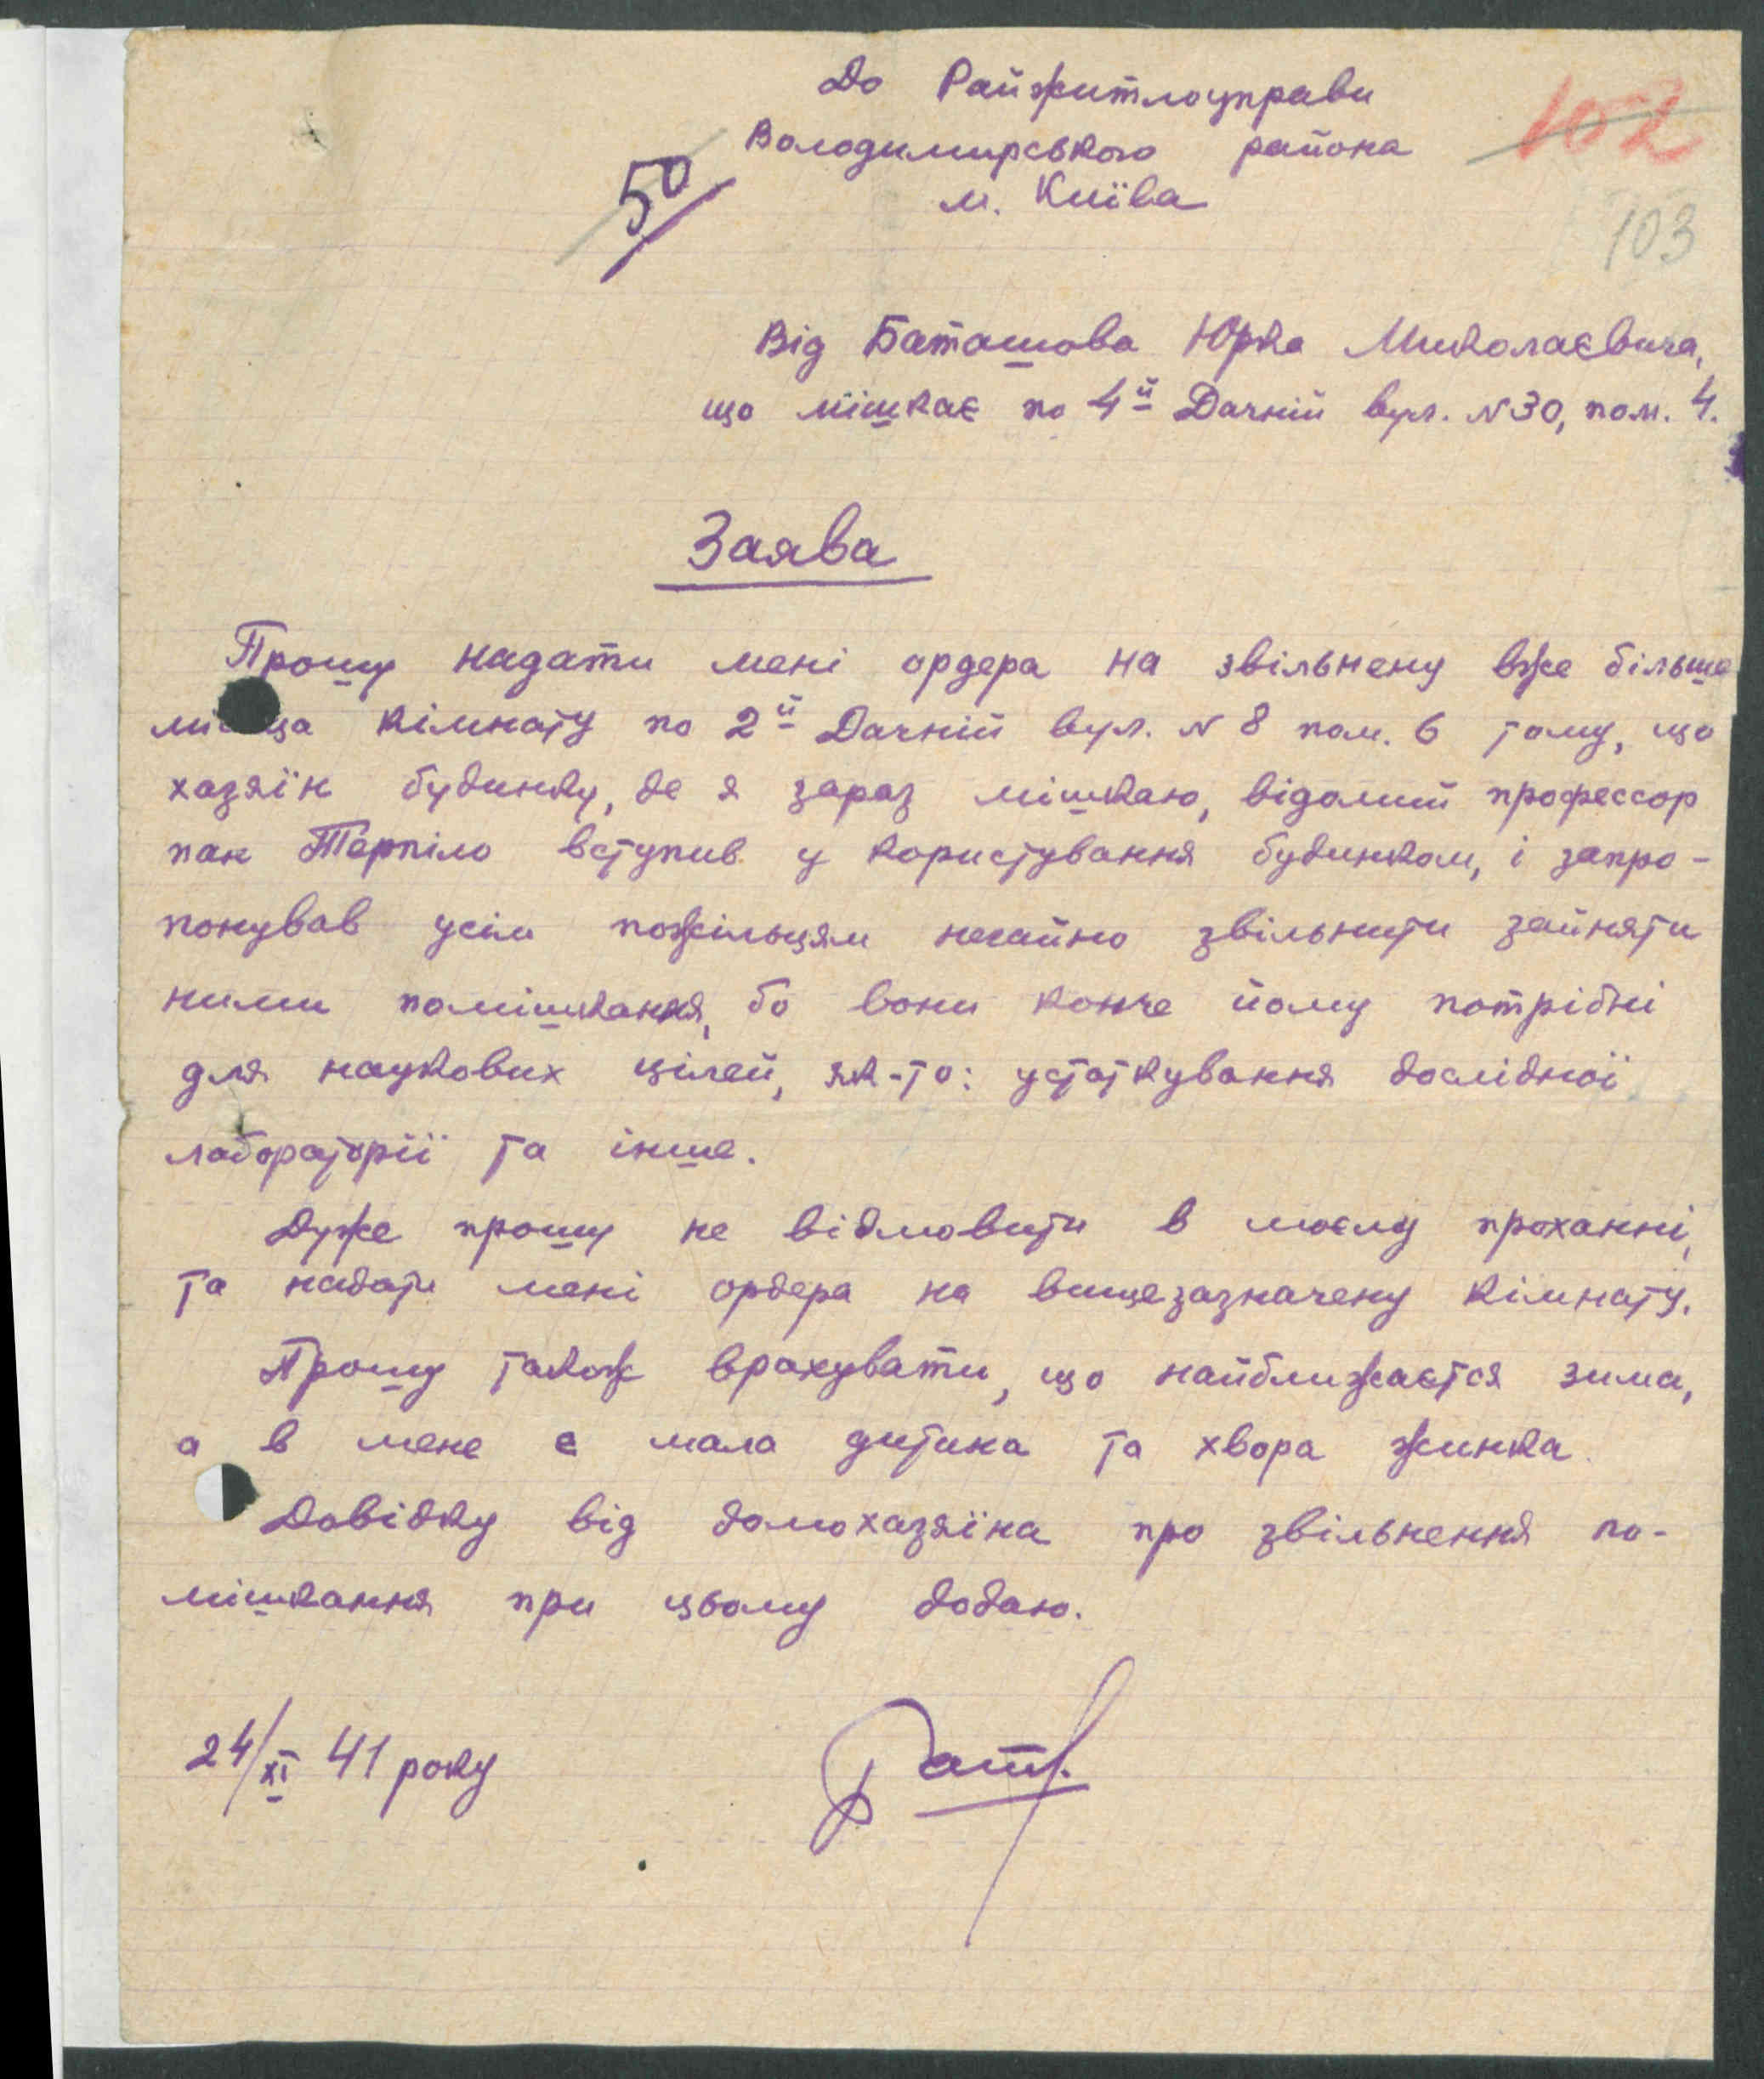 До Райжитлоуправи
Володимирського района
м. Київа
102
50
103
Від Баташова Юрка Миколаєвича,
що мішкає по 4й Дачній вул. N 30, пом. 4.
Заява
Прошу надати мені ордера на звільнену вже більше
кімнату по 2й Дачній вул. N 8 пом. 6 тому, що
хазяїн будинку, де я зараз мішкаю, відомий профессор
пан Терпіло вступив у користування будинком, і запро-
понував усім пожільцям негайно звільнити зайняти
ними помішкання, бо вони конче йому потрібні
для наукових цілей, як-то: устаткування дослідної
лабораторії та інше.
Дуже прошу не відмовити в моєму проханні,
та надати мені ордера на вищезазначену кімнату.
Прошу також врахувати, що найближається зима,
а в мене є мала дитина та хвора жинка.
Довідку від домохазяїна про звільнення по-
мішкання при цьому додаю.
24/XI 41 року